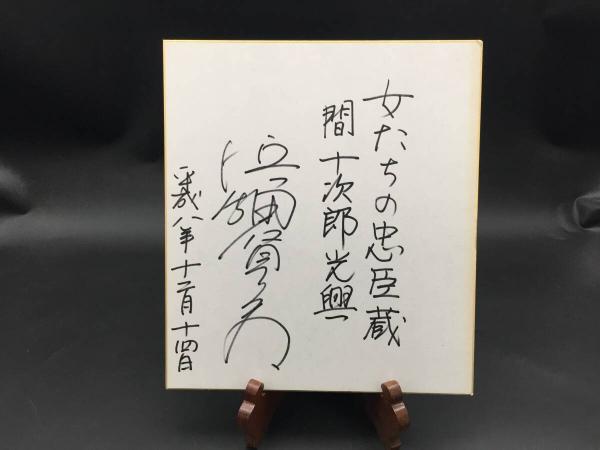 女たちの忠臣蔵
間十次郎光興
平成八年十二月十四日